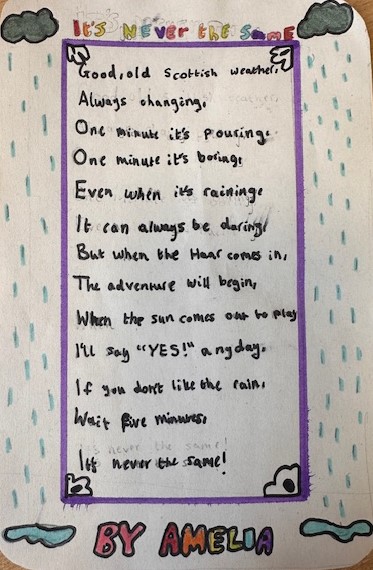 It's Never the Same
Good, old Scottish weather,
Always changing,
One minute it's pouring,
One minute it's boring,
Even when it's raining,
It can always be daring,
But when the Haar comes in,
The adventure will begin,
When the sun comes out to play
I'll say "YES!" anyday.
If you don't like the rain,
Wait five minutes,
It's never the same!
BY AMELIA